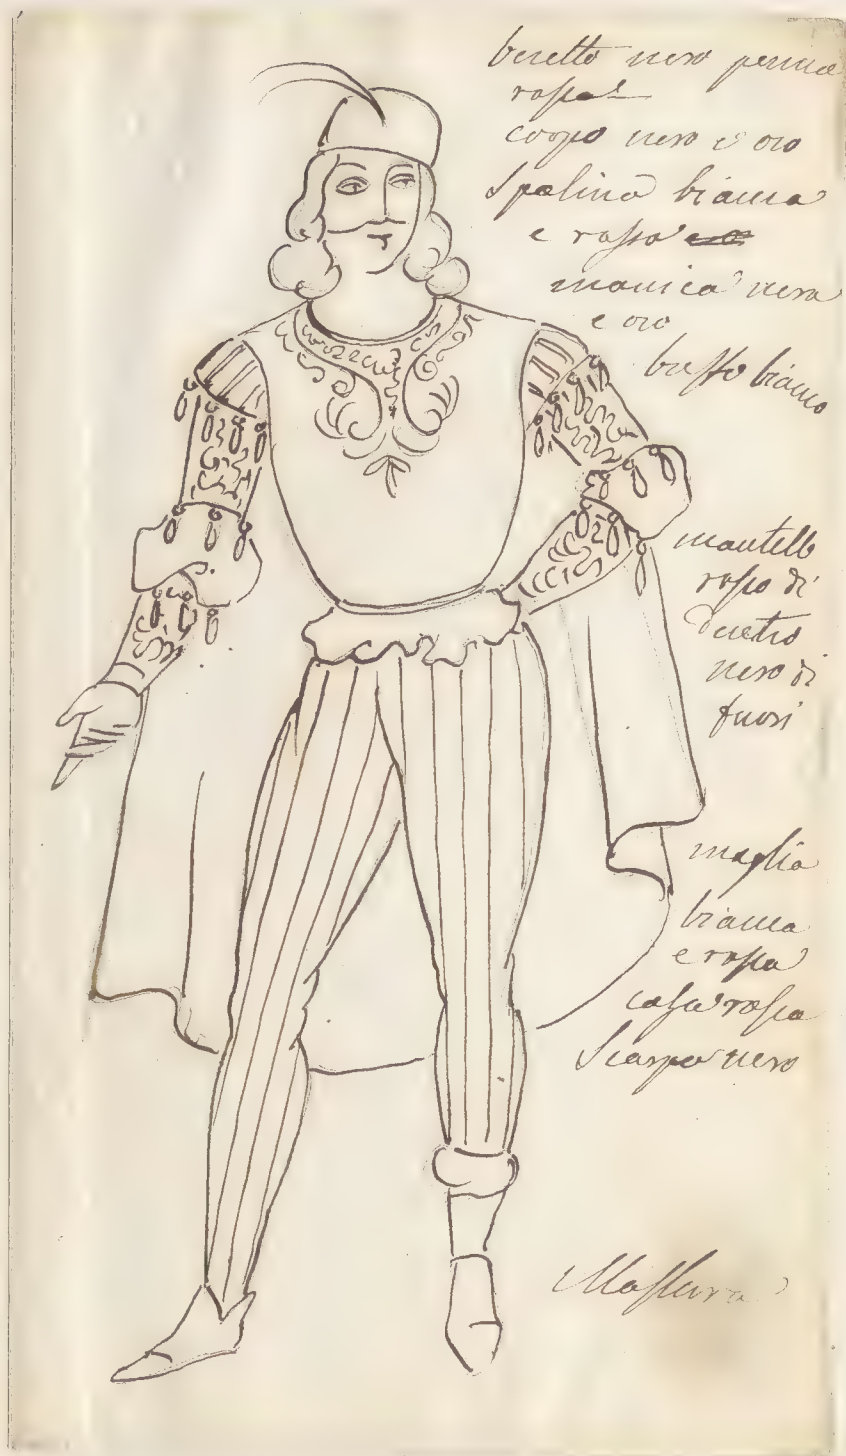 beretto nero penna
rossa
corpo nero e oro
Spalino bianca
e rossa
manica nera
e oro
buffo bianco
mantello
rosso di
dentro
nero di
fuori
maglia
bianca
e rossa
calsa rossa
Scarpa nero